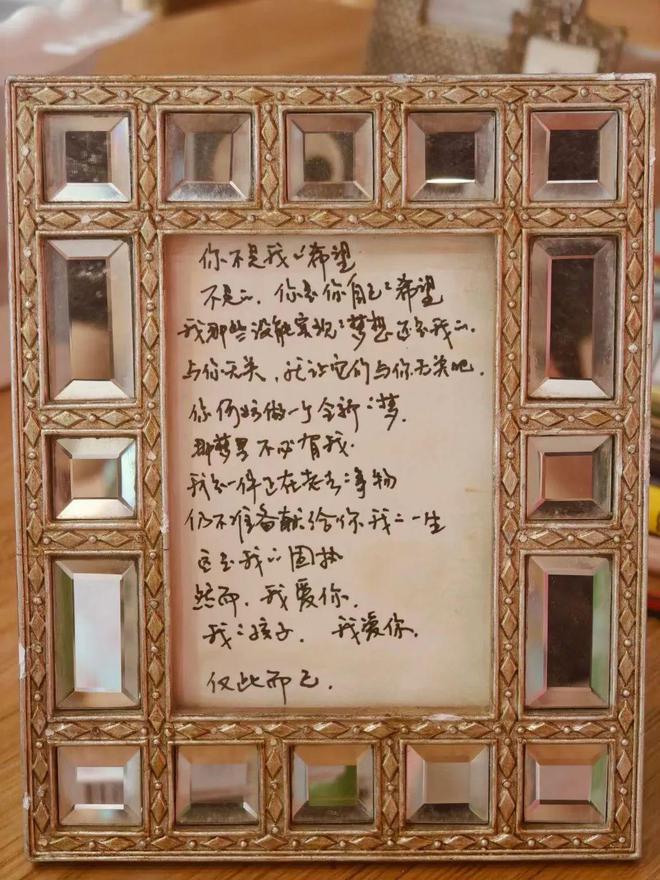 你不是我的希望
不是的，你是你自己的希望
我那些没能实现的梦想还是我的，
与你无关，就让它们与你无关吧，
你何妨做一个全新的梦，
那梦里不必有我。
我是一件正在老去的事物
仍不准备献给你我的一生
这是我的固执
然而，我爱你，
我的孩子，我爱你，
仅此而已。